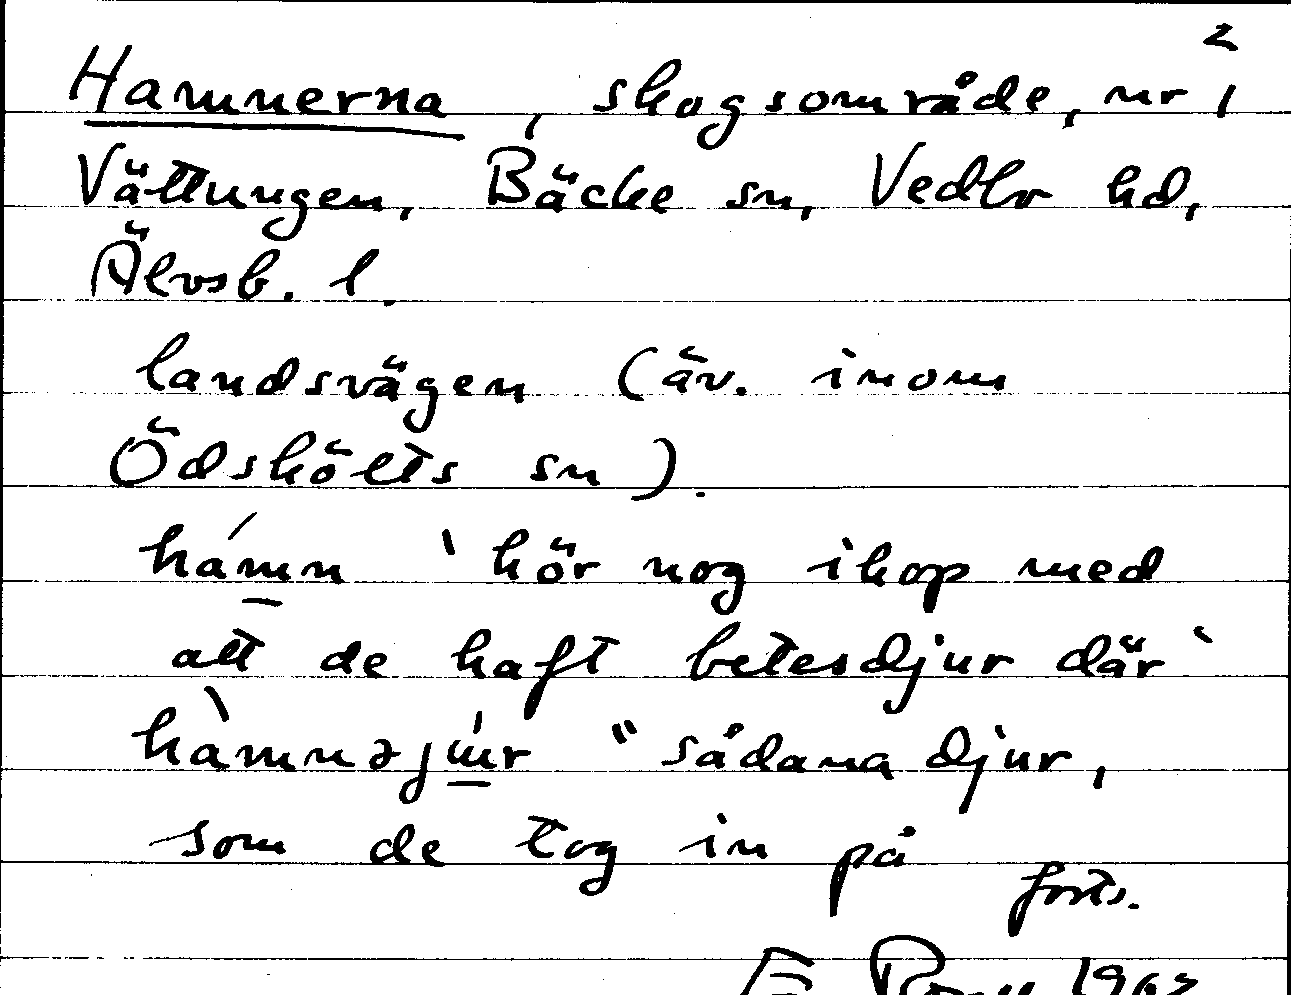 2
Hamnerna, skogsområde, nr 1
Vättungen, Bäcke sn, Vedbo hd,
Älvsb. l.
landsvägen (äv. inom
Ödskölts sn).
hámn ‵hör nog ihop med
att de haft betesdjur där‵
hàmnəjúr "sådana djur,
som de tog in på
forts.
1963